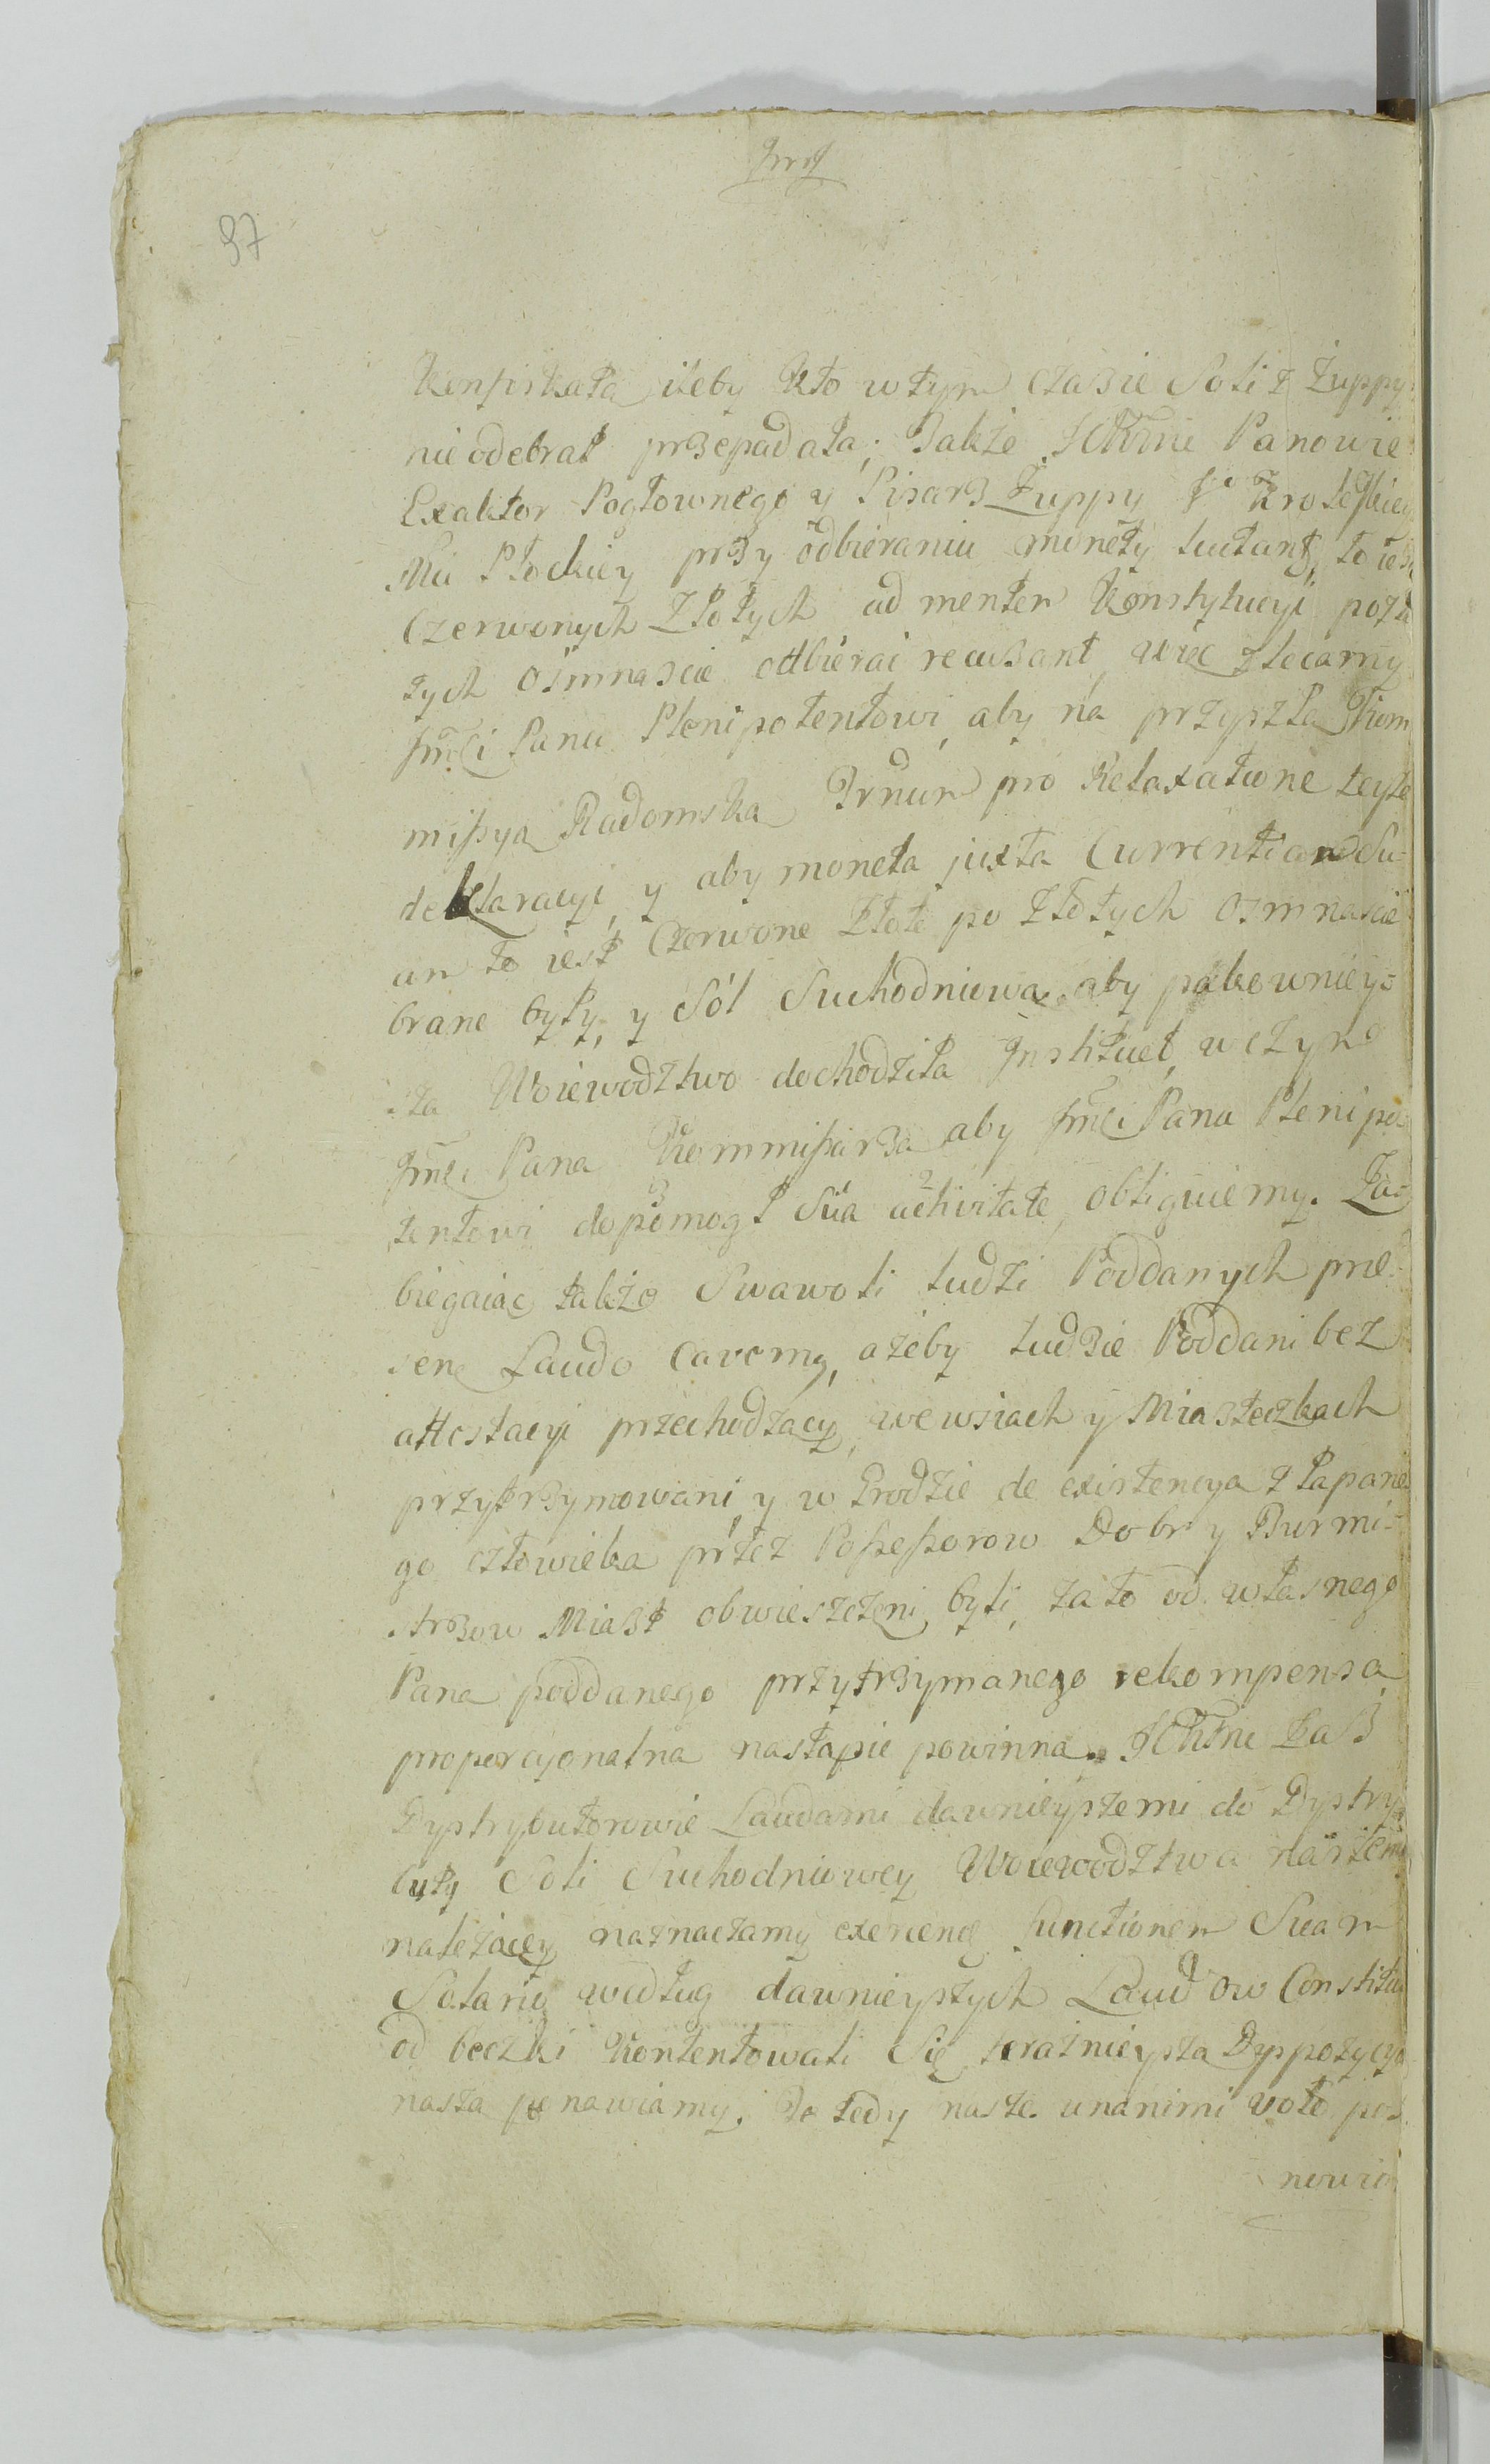 97
Konfiskata iżeby kto w tym czasie Soli z Zuppy
nie odebrał przepadała; Także Ichmć Panowie
Exaktor Pogłownego y Pisarz Zuppy
Mći Płockiey przy odbieraniu monety luctant, to iest
Czerwonych Złotych ad mentem Konstytucyi po zł
tych osmnascie odbierać recusant, więc zlecamy
Jmći Panu Plenipotentowi, aby na przyszła Kom
missya Radomska pro Relaxatione teyże
deklaracyi, y aby moneta juxta Currentiam Su=
am to iest Czerwone Złote po złotych osmnascie
brane były, y Sól Suchodniowa aby pakownieÿ=
sza Woiewodztwo dochodziła Instituet, w czym
Jmći Pana Kommissarza aby Jmći Panu Plenipo=
tentowi dopomogł Sua activitate, obliguiemy. Za=
biegaiąc także Swawoli ludzi Poddanych præ=
sens Laudo cavemg, ażeby ludzie Poddani bez
attestacyi przechodzący, we wsiach y Miasteczkach
przytrzymowani, y w Grodzie de existencya złapane=
go człowieka przez Possessorow Dobr y Burmi=
strzow Miast obwieszczeni byli, za to od własnego
Pana poddanego przytrzymanego rekompensa
proporcyonalna nastąpić powinna. Ichmć zaś
Dystrybutorowie Laudami dawnieyszemi do Dystry
buty Soli Suchodniowey Woiewodztwa naszemu
należącey naznaczamy exercend functionem Suam
Salario według dawnieyszych Laudow Constitu
od beczki kontentowali Się, teraznieysza Dyspozycya
nasza ponawiamy. To tedy nasze unanimi voto pos
nowio